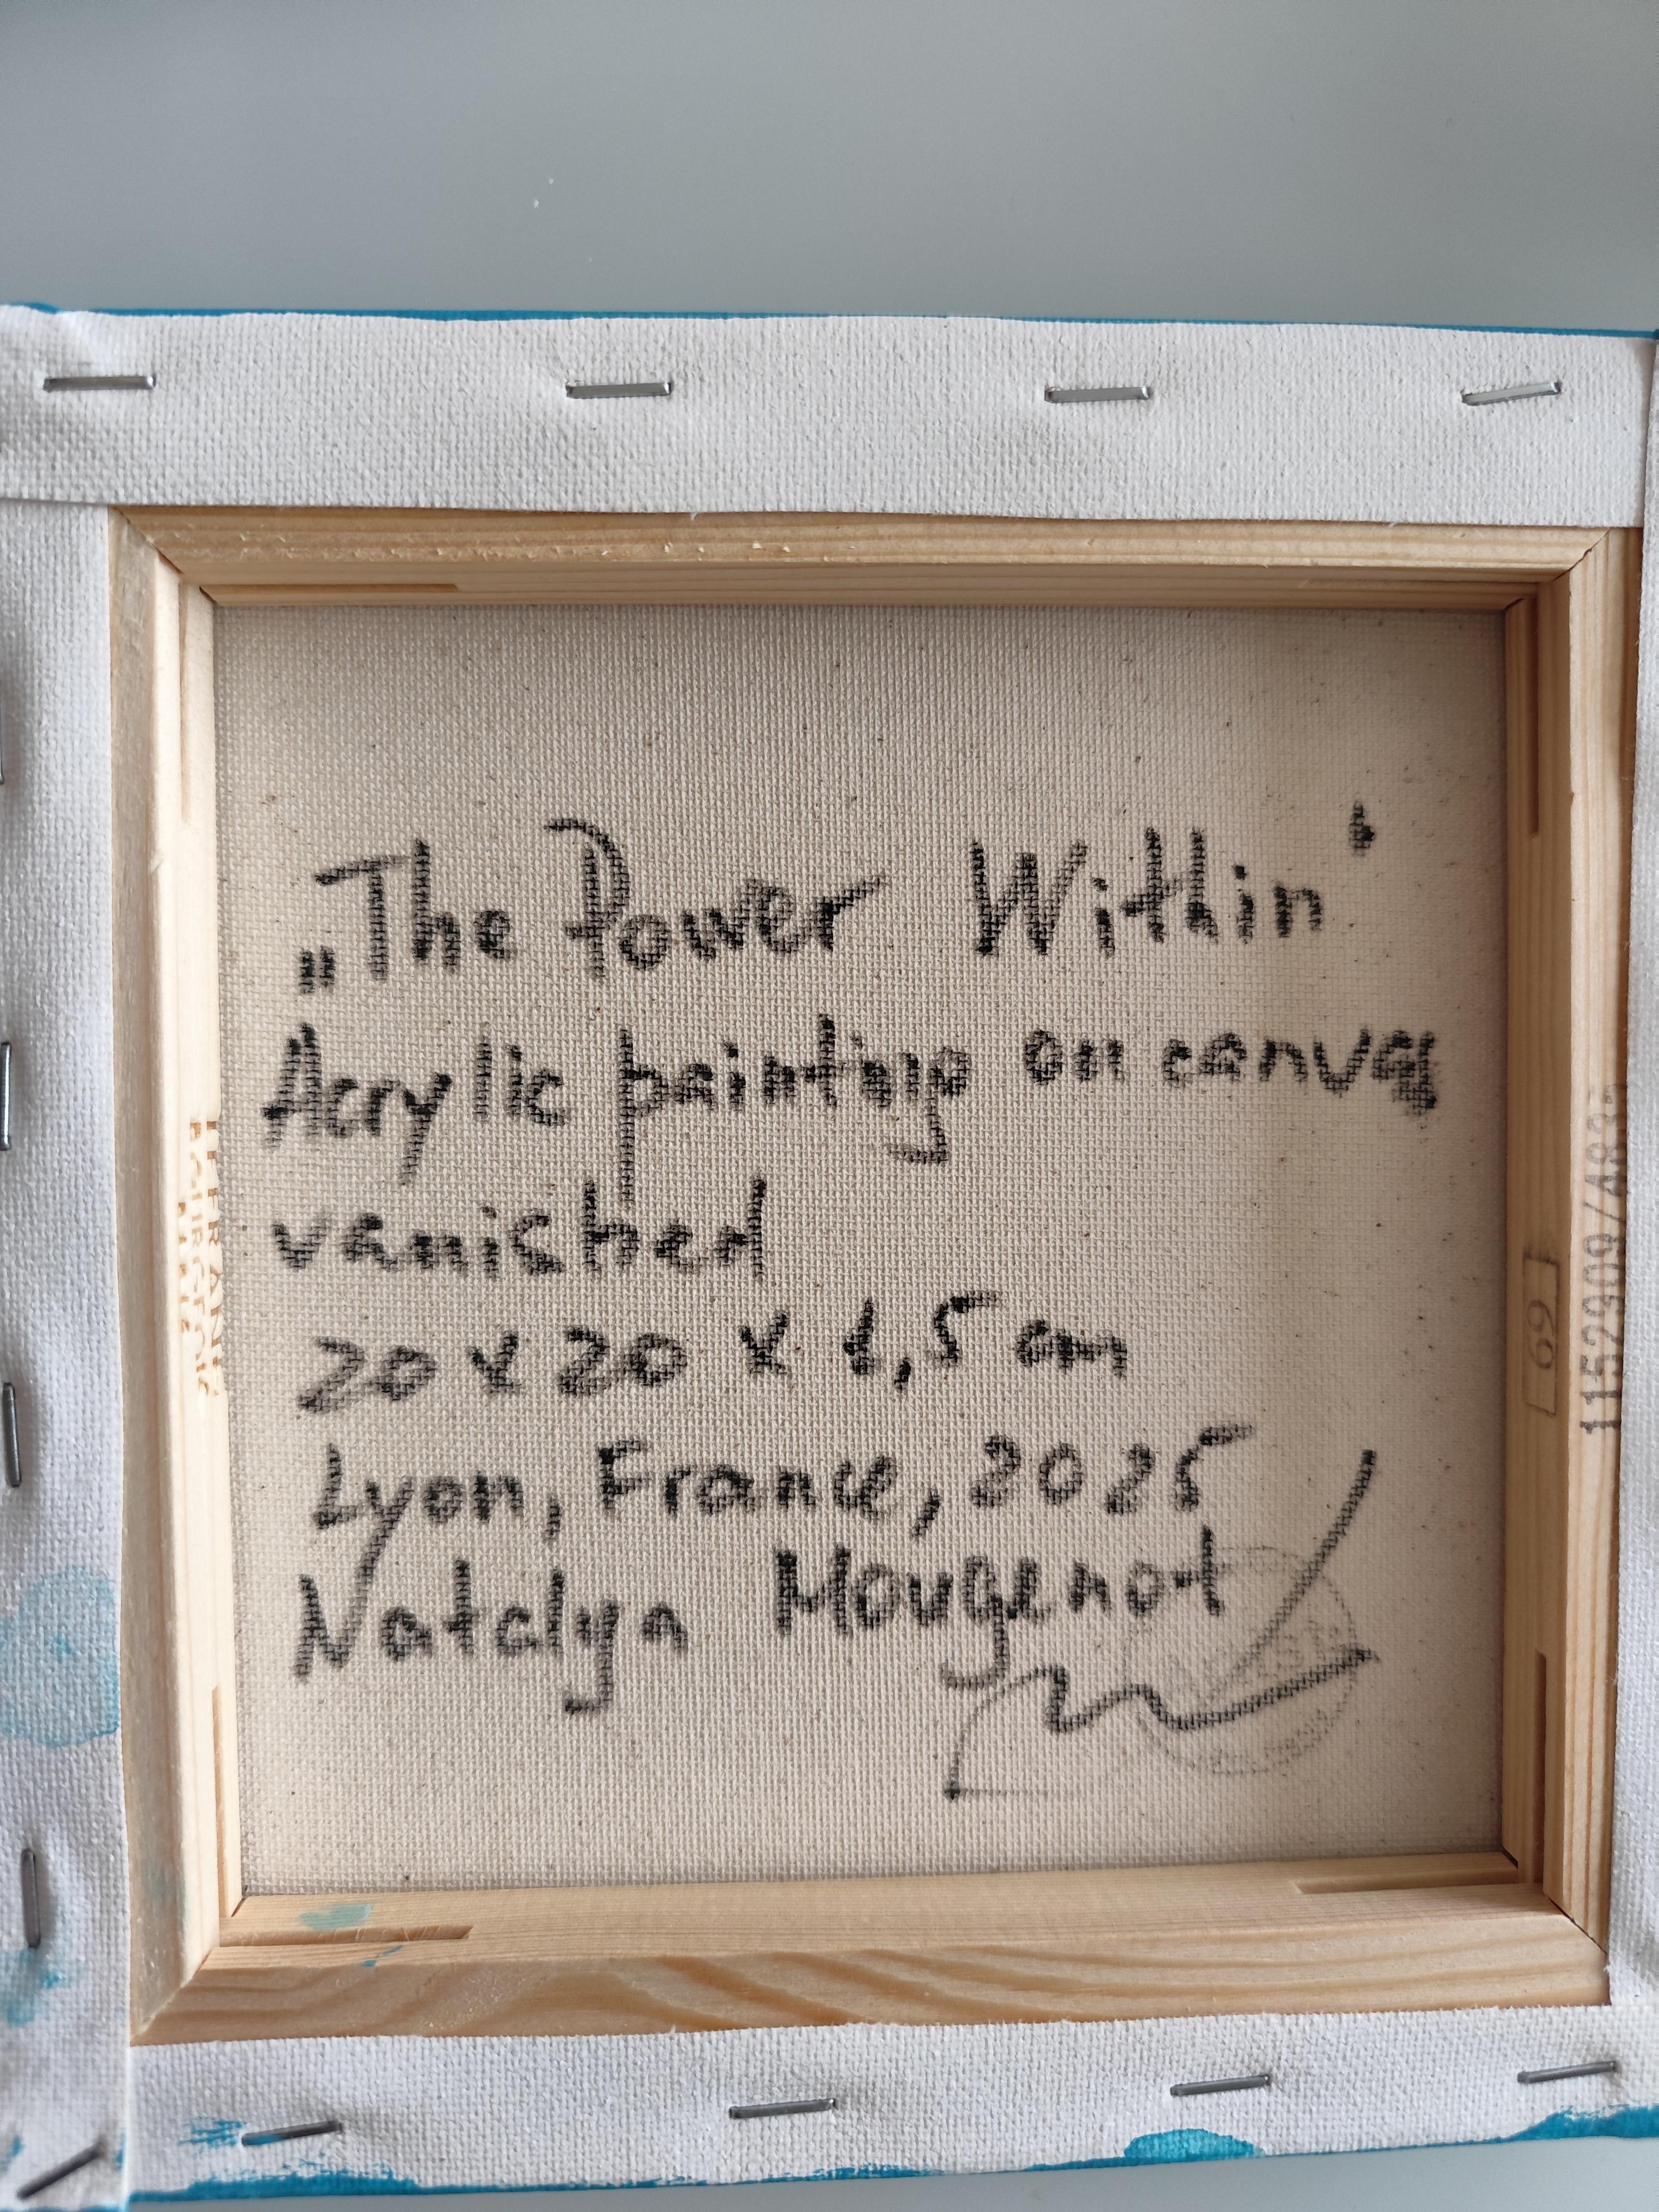 „The Power Within'
Acrylic painting on canvas
vanished
20 x 20 x 1,5 cm
Lyon, France, 2025
Natalyn Mougenot
69
1152909/483